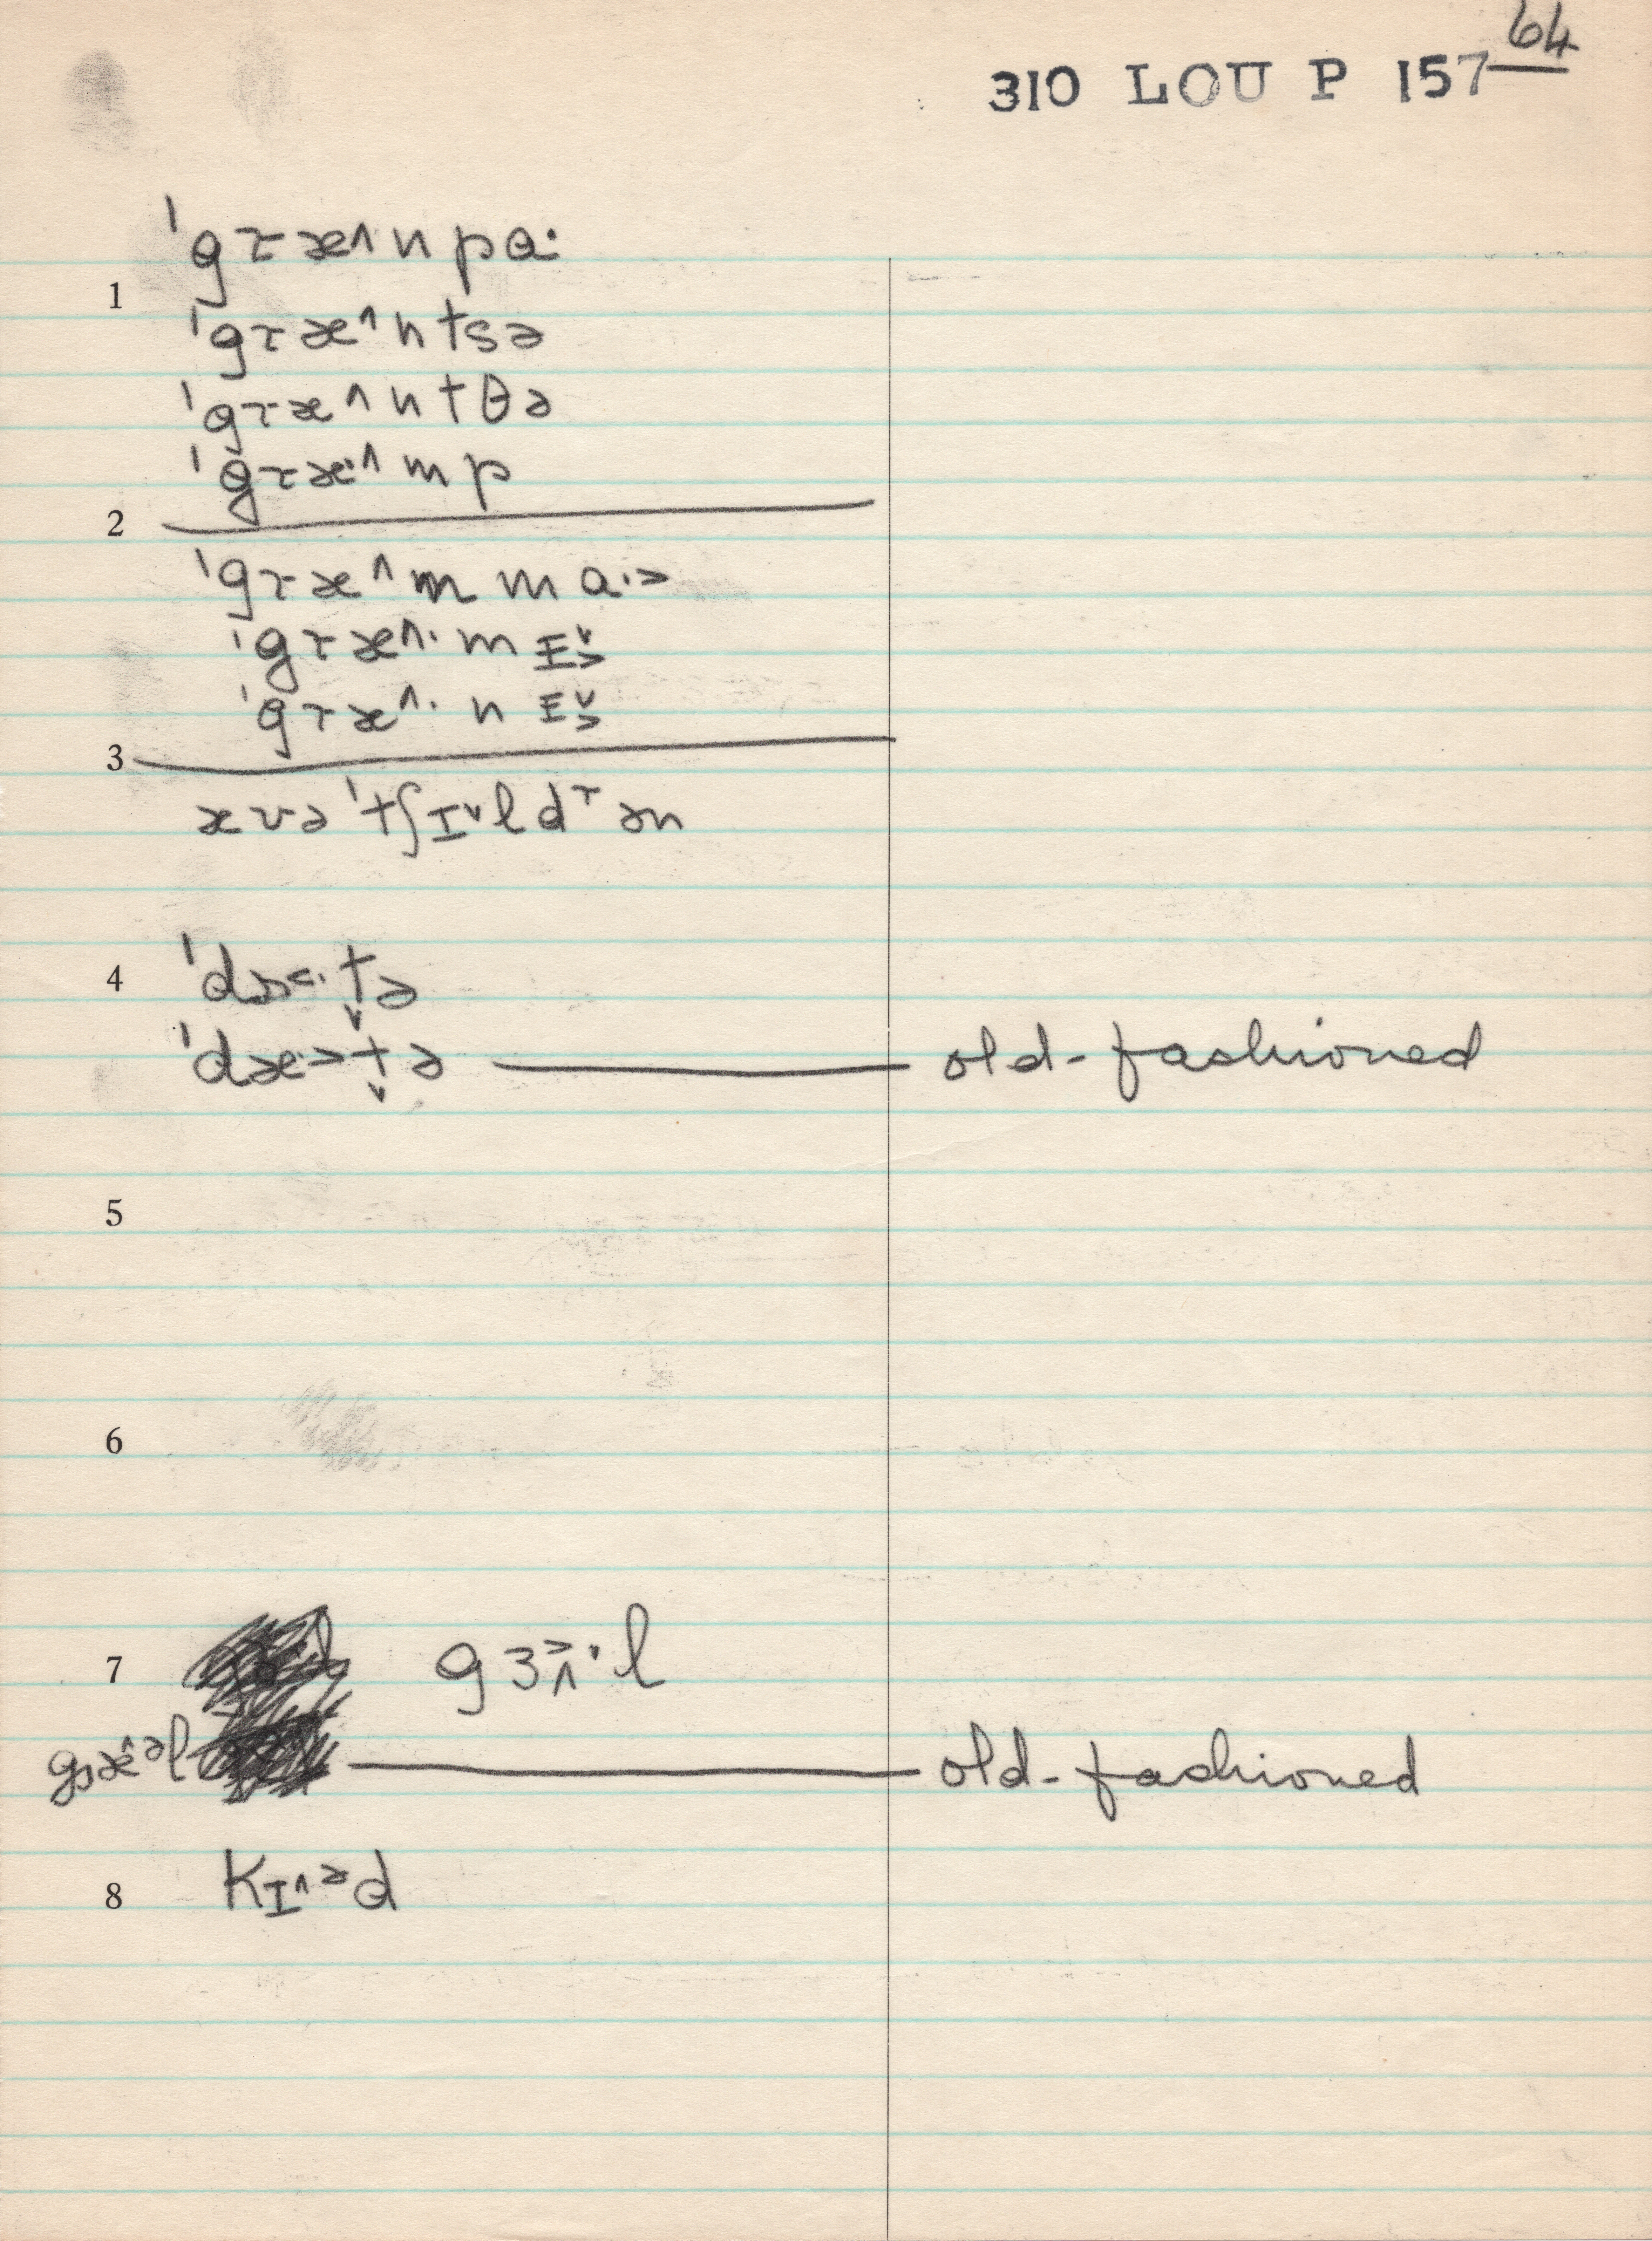 64
310 LOU P 157
ˈgɾæ^npɑ·
1
ˈgɾæ^ntsə
ˈgɾæ^ntθə
ˈgɾæ·^mp
2
ˈgɾæ^mmɑ·>
ˈgɾæ^·mɪ̬>
ˈgɾæ^·nɪ̬>
3
ævə ˈtʃɪˇldᵊrən
4 ˈdɒ<·t̬ə
ˈdæ>t̬ə old-fashioned
5
6
7 gɜ>^·l
gæ^ᵊl old-fashioned
8 kɪ^ᵊd